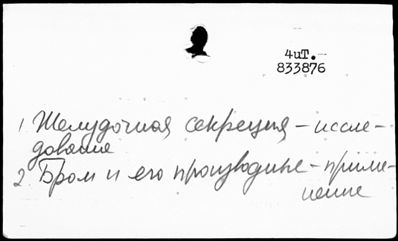 4иТ.
833876
1. Желудочная секреция – иссле-
дование
2. Бром и его производные – приме-
нение